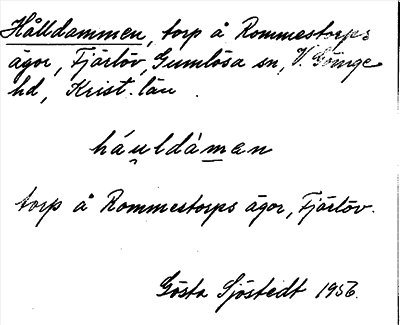 Hålldammen, torp å Rommestorps
ägor, Fjärlöv, Gumlösa sn, V. Göinge
hd, Krist. län.
háu̯ldàmen
torp å Rommestorps ägor, Fjärlöv.
Gösta Sjöstedt 1956.